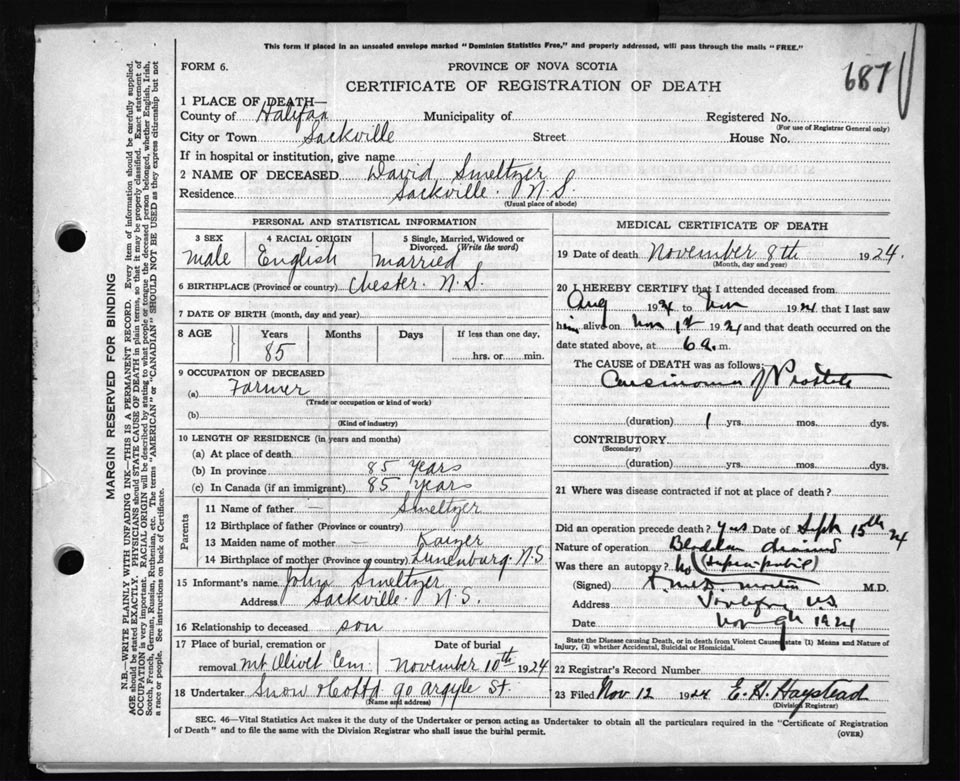 This form if placed in an unsealed envelope marked "Dominion Statistics Free," and properly addressed, will pass through the mails "FREE."
FORM 6.
PROVINCE OF NOVA SCOTIA
CERTIFICATE OF REGISTRATION OF DEATH
687
MARGIN RESERVED FOR BINDING
N.B.—WRITE PLAINLY WITH UNFADING INK—THIS IS A PERMANENT RECORD. Every item of information should be carefully supplied.
AGE should be stated EXACTLY. PHYSICIANS should STATE CAUSE OF DEATH in plain terms, so that it may be properly classified. Exact statement of
OCCUPATION is very important. RACIAL ORIGIN will be described by stating to what people or tongue the deceased person belonged, whether English, Irish,
Scotch, French, German, Russian, Ruthenian, etc. The terms "AMERICAN" or "CANADIAN" SHOULD NOT BE USED as they express citizenship but not
a race or people. See instructions on back of Certificate.
1 PLACE OF DEATH—
County of Halifax Municipality of Registered No.
(For use of Registrar General only)
City or Town Sackville Street House No.
If in hospital or institution, give name
2 NAME OF DECEASED David Smeltzer
Residence Sackville. N.S.
(Usual place of abode)
PERSONAL AND STATISTICAL INFORMATION
3 SEX 4 RACIAL ORIGIN 5 Single, Married, Widowed or
Divorced. (Write the word)
male English married
6 BIRTHPLACE (Province or country) Chester. N.S.
7 DATE OF BIRTH (month, day and year)
8 AGE Years Months Days If less than one day,
85 hrs. or min.
9 OCCUPATION OF DECEASED
(a) Farmer
(Trade or occupation or kind of work)
(b)
(Kind of industry)
10 LENGTH OF RESIDENCE (in years and months)
(a) At place of death
(b) In province 85 Years
(c) In Canada (if an immigrant) 85 Years
Parents
11 Name of father — Smeltzer
12 Birthplace of father (Province or country)
13 Maiden name of mother — Kaizer
14 Birthplace of mother (Province or country) Lunenburg. N.S.
15 Informant's name John Smeltzer
Address Sackville. N.S.
16 Relationship to deceased son
17 Place of burial, cremation or Date of burial
removal Mt Olivet Cem. November 10th 1924
18 Undertaker Snow & Co Ltd 90 Argyle St.
(Name and address)
MEDICAL CERTIFICATE OF DEATH
19 Date of death November 8th 1924.
(Month, day and year)
20 I HEREBY CERTIFY that I attended deceased from
Aug 1924 to Nov 1924 that I last saw
him alive on Nov 1st 1924 and that death occurred on the
date stated above, at 6 a.m.
The CAUSE OF DEATH was as follows:
Carsinoma of Prostate
(duration) 1 yrs. mos. dys.
CONTRIBUTORY
(Secondary)
(duration) yrs. mos. dys.
21 Where was disease contracted if not at place of death?
Did an operation precede death? yes Date of Sept 15th 24
Nature of operation Bladder drained
Was there an autopsy? No (suprapubic)
(Signed) M.D.
Address N.S.
Date Nov 9th 1924
State the Disease causing Death, or in death from Violent Causes state (1) Means and Nature of
Injury, (2) whether Accidental, Suicidal or Homicidal.
22 Registrar's Record Number
23 Filed Nov 12 1924 E. H. Haystead
(Division Registrar)
SEC. 46—Vital Statistics Act makes it the duty of the Undertaker or person acting as Undertaker to obtain all the particulars required in the "Certificate of Registration
of Death" and to file the same with the Division Registrar who shall issue the burial permit.
(OVER)